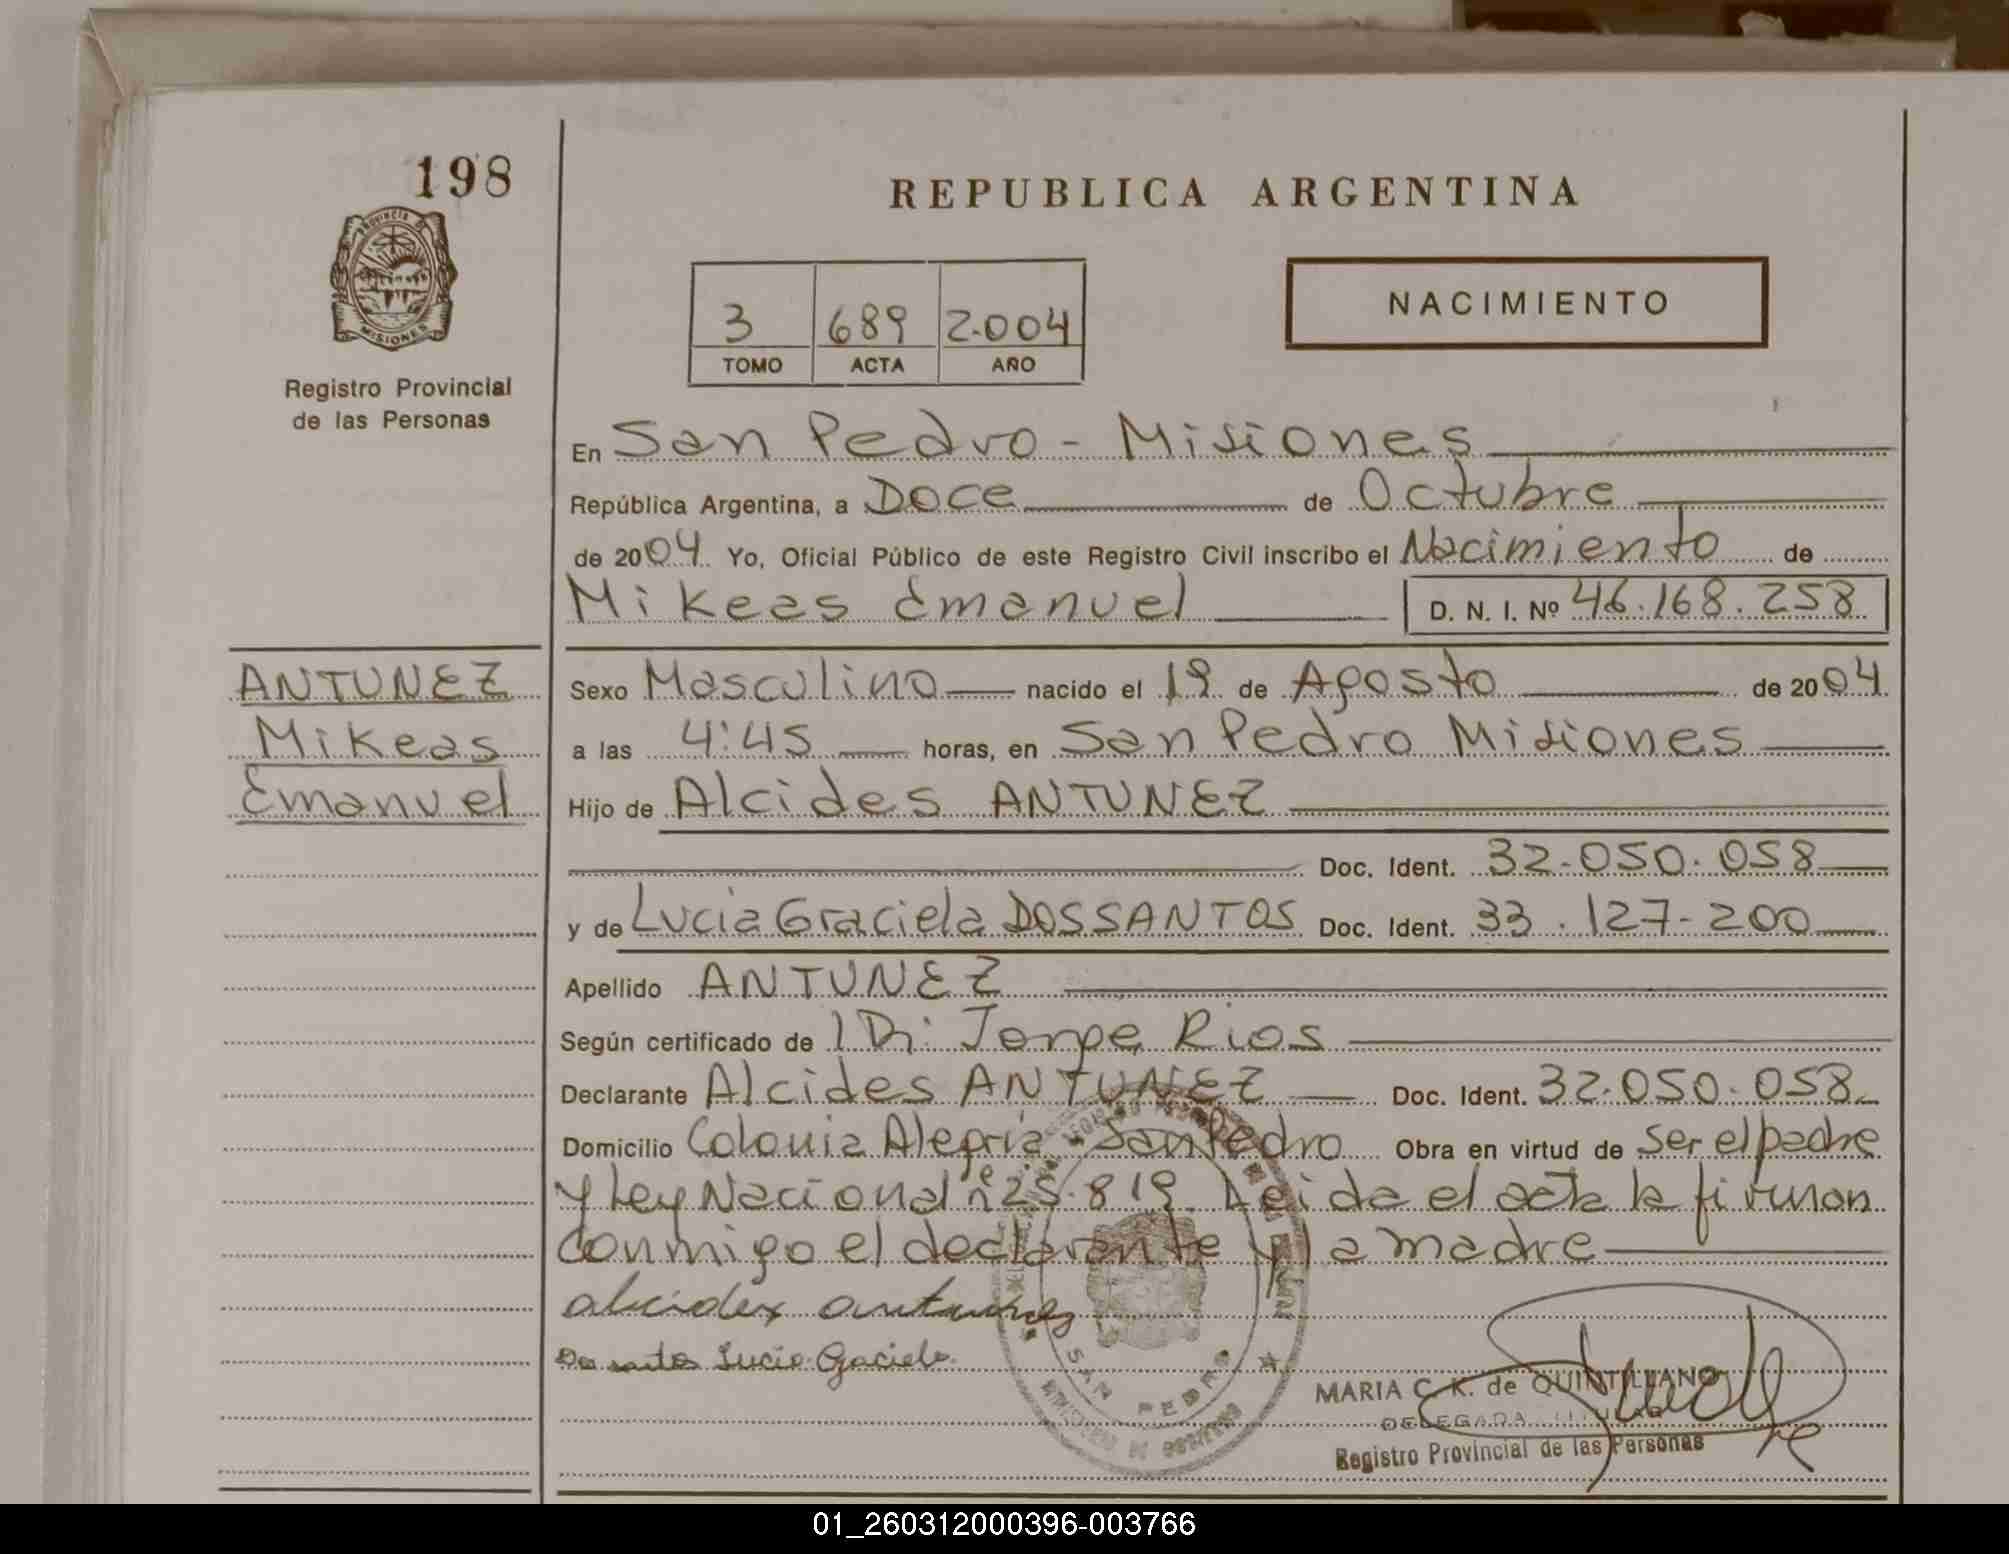 198
REPUBLICA ARGENTINA
PROVINCIA DE
MISIONES
Registro Provincial
de las Personas
NACIMIENTO
3 689 2.004
TOMO ACTA AÑO
En San Pedro - Misiones
República Argentina, a Doce de Octubre
de 2004 Yo, Oficial Público de este Registro Civil inscribo el Nacimiento de
Mikeas Emanuel D. N. I. Nº 46.168.258
ANTUNEZ
Mikeas
Emanuel
Sexo Masculino nacido el 19 de Agosto de 2004
a las 4:45 horas, en San Pedro Misiones
Hijo de Alcides ANTUNEZ
Doc. Ident. 32.050.058
y de Lucia Graciela DOSSANTOS Doc. Ident. 33.127-200
Apellido ANTUNEZ
Según certificado de Jorge Rios
Declarante Alcides ANTUNEZ Doc. Ident. 32.050.058
Domicilio Colonia Alegría San Pedro Obra en virtud de ser el padre
y Ley Nacional nº 25.819. Leida el acta la firman
conmigo el declarante y la madre
alcides antunes
Dos santos Lucia Graciela
SAN PEDRO
MARIA C. K. de QUINTILLANO
DELEGADA TITULAR
Registro Provincial de las Personas
01_260312000396-003766